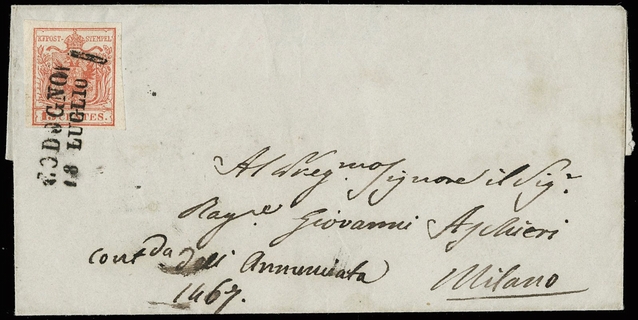 KKPOST-STEMPEL
15 CENTES.
CODOGNO
18 LUGLIO
Al Preg.mo Signore il Sig.r
Rag.re Giovanni Aschieri
Cont.da dell Annunciata
Milano
1467.